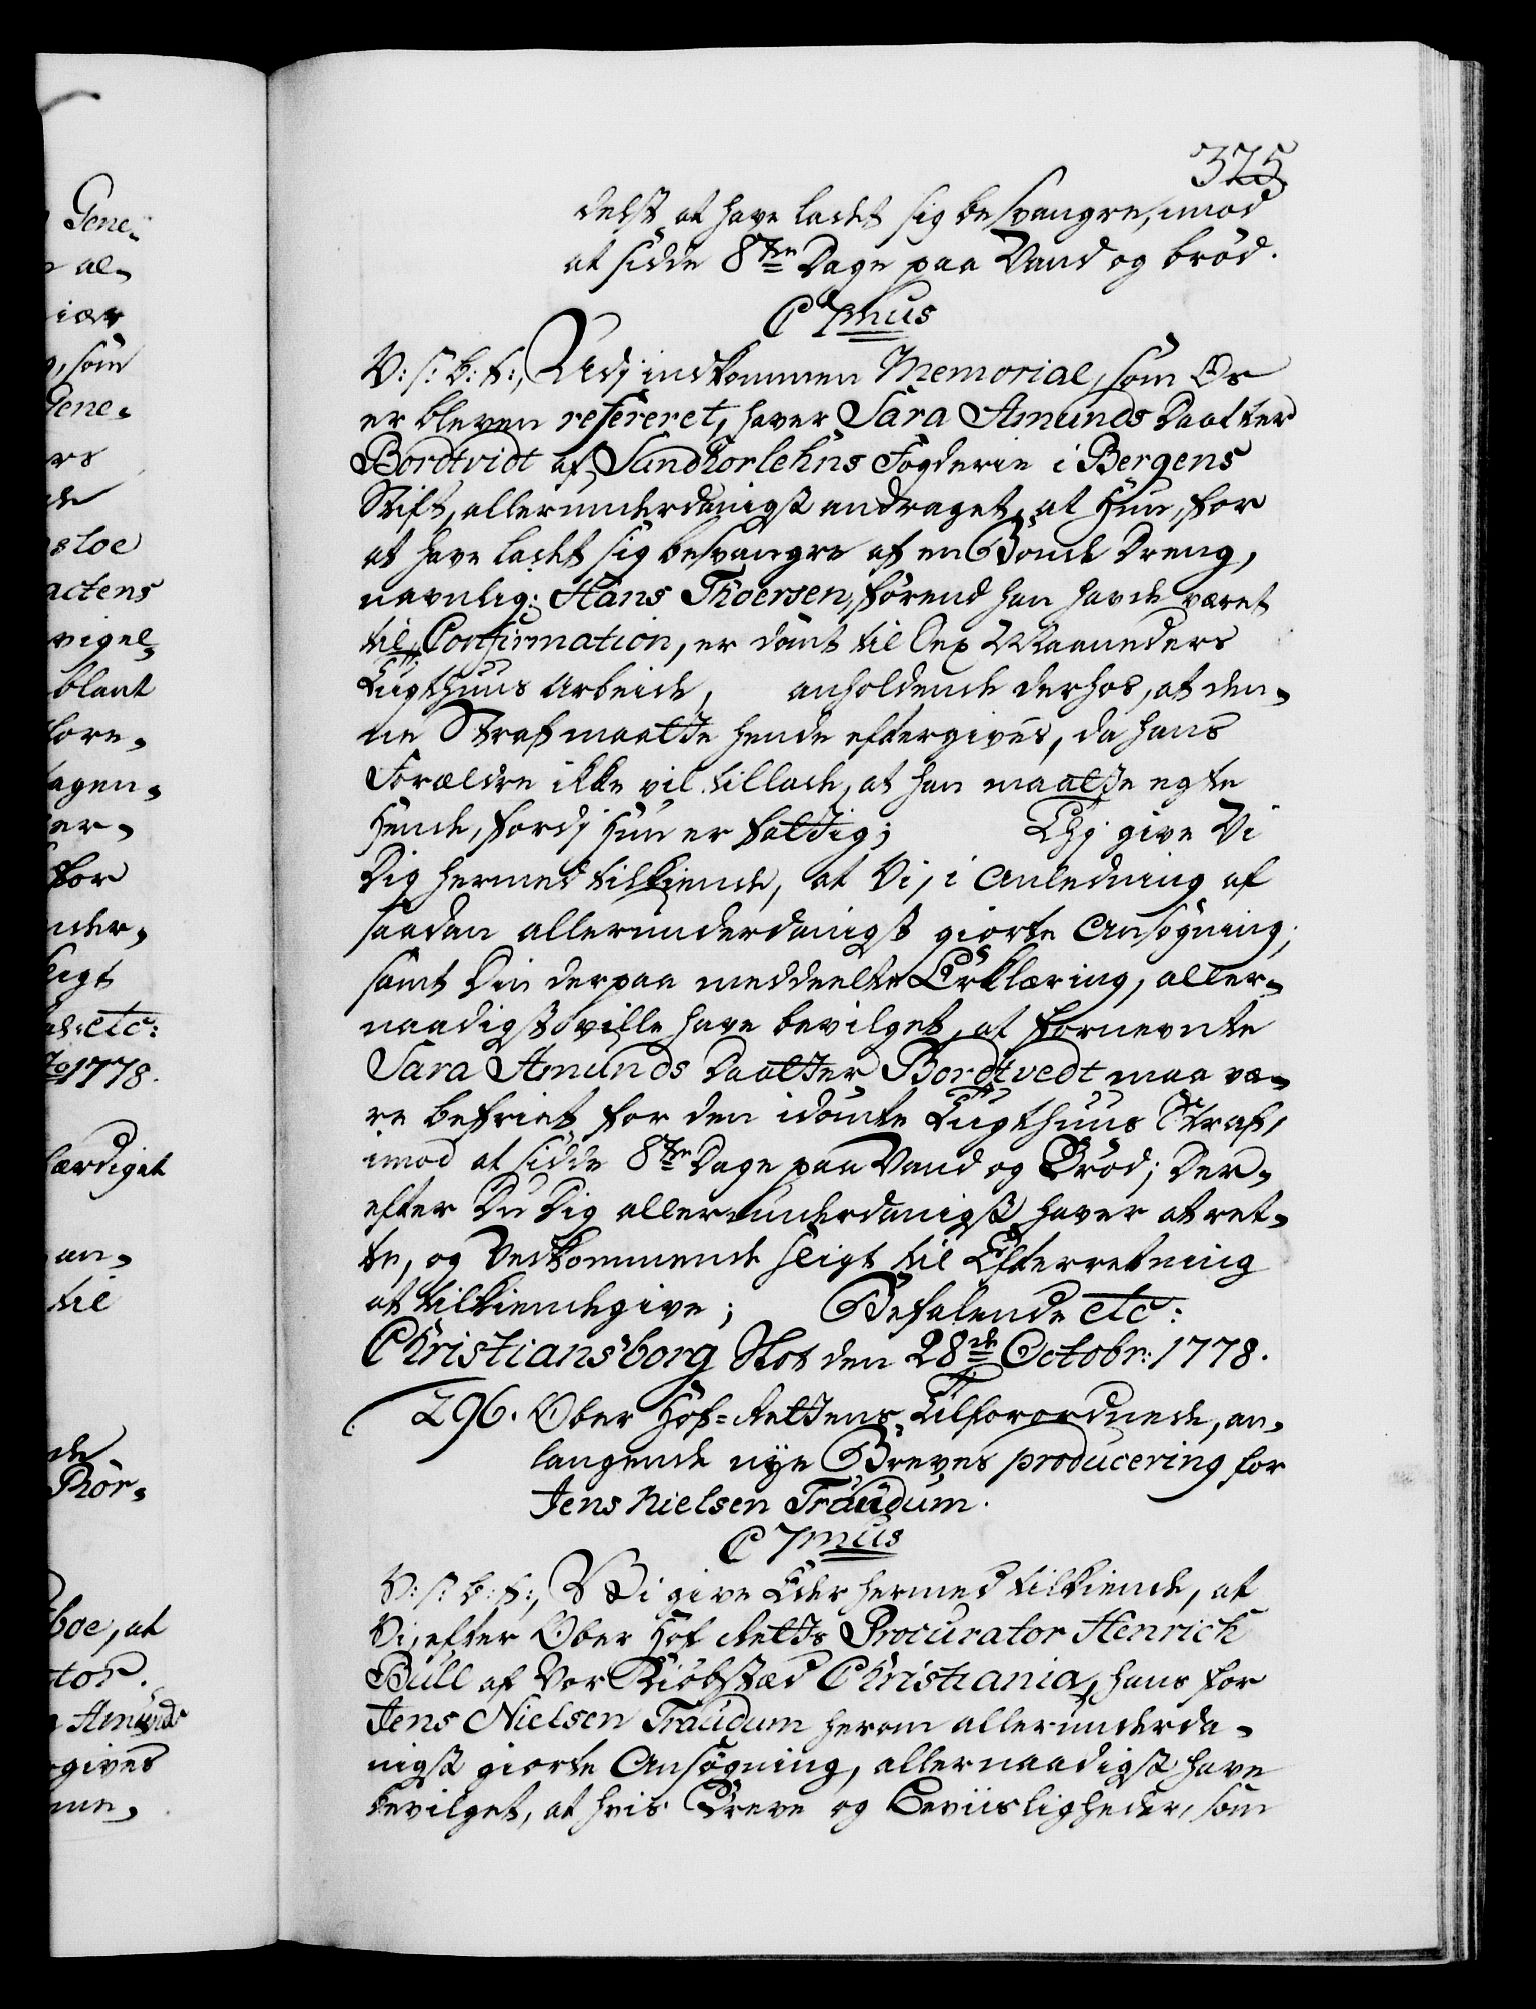 375
delst at have ladet sig besvangre, imod
at sidde 8te Dage paa Vand og brød.
C 7mus
V: S: B: T:, Udj indkommen Memorial, som Os
er bleven refereret, haver Sara Amunds Daatter
Bordtvidt af Sundhorlehns Fogderie i Bergens
Stift, allerunderdanigst andraget, at Hun, for
at have ladet sig besvangre af en Bonde Dreng,
navnlig: Hans Thoersen, førend han havde været
til Confirmation, er dømt til Sex Maaneders
Tugthuus Arbeide, anholdende derhos, at den-
ne Straf maatte hende eftergives, da hans
Forældre ikke vil tillade, at han maatte egte
Hende, fordj Hun er fattig; Thj give Vi
Dig hermed tilkiende, at Vi, i Anledning af
saadan allerunderdanigst giorte Ansøgning,
samt Din derpaa meddeelte Erklæring, aller-
naadigst ville have bevilget, at fornevnte
Sara Amunds Daatter Bordtvedt maa væ-
re befriet for den idømte Tugthuus Straf,
imod at sidde 8te Dage paa Vand og Brød; Der-
efter Du Dig allerunderdanigst haver at ret-
te, og Vedkommende sligt til Efterretning
at tilkiendegive; Befalende etc:
Christiansborg Slot den 28de Octobr: 1778.
296. Ober Hof-Rettens Tilforordnede, an-
langende nye Breves producering for
Jens Nielsen Traudum.
C 7mus
V: S: B: T:, Vi give Eder hermed tilkiende, at
Vi, efter Ober Hof Retts Procurator Henrich
Bull af Vor Kiøbstæd Christiania, hans for
Jens Nielsen Traudum herom allerunderda-
nigst giorte Ansøgning, allernaadigst have
bevilget, at hvis Breve og Beviisligheder, som